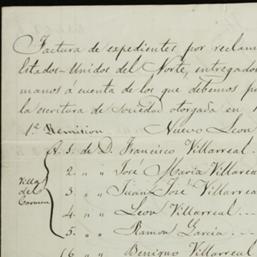 Factura de expedientes por reclam
Estados-Unidos del Norte, entregado
manos á cuenta de los que debemos p
la escritura de Sociedad otorgada en 1
1ª Remision Nuevo Leon
A. 1. de D. Francisco Villarreal.
2. " " José Maria Villarea
3. " " Juan José Villarrea
Villa del Carmen
4. " " Leon Villarreal
5. " " Ramon Garcia
6. " " Benigno Villarreal